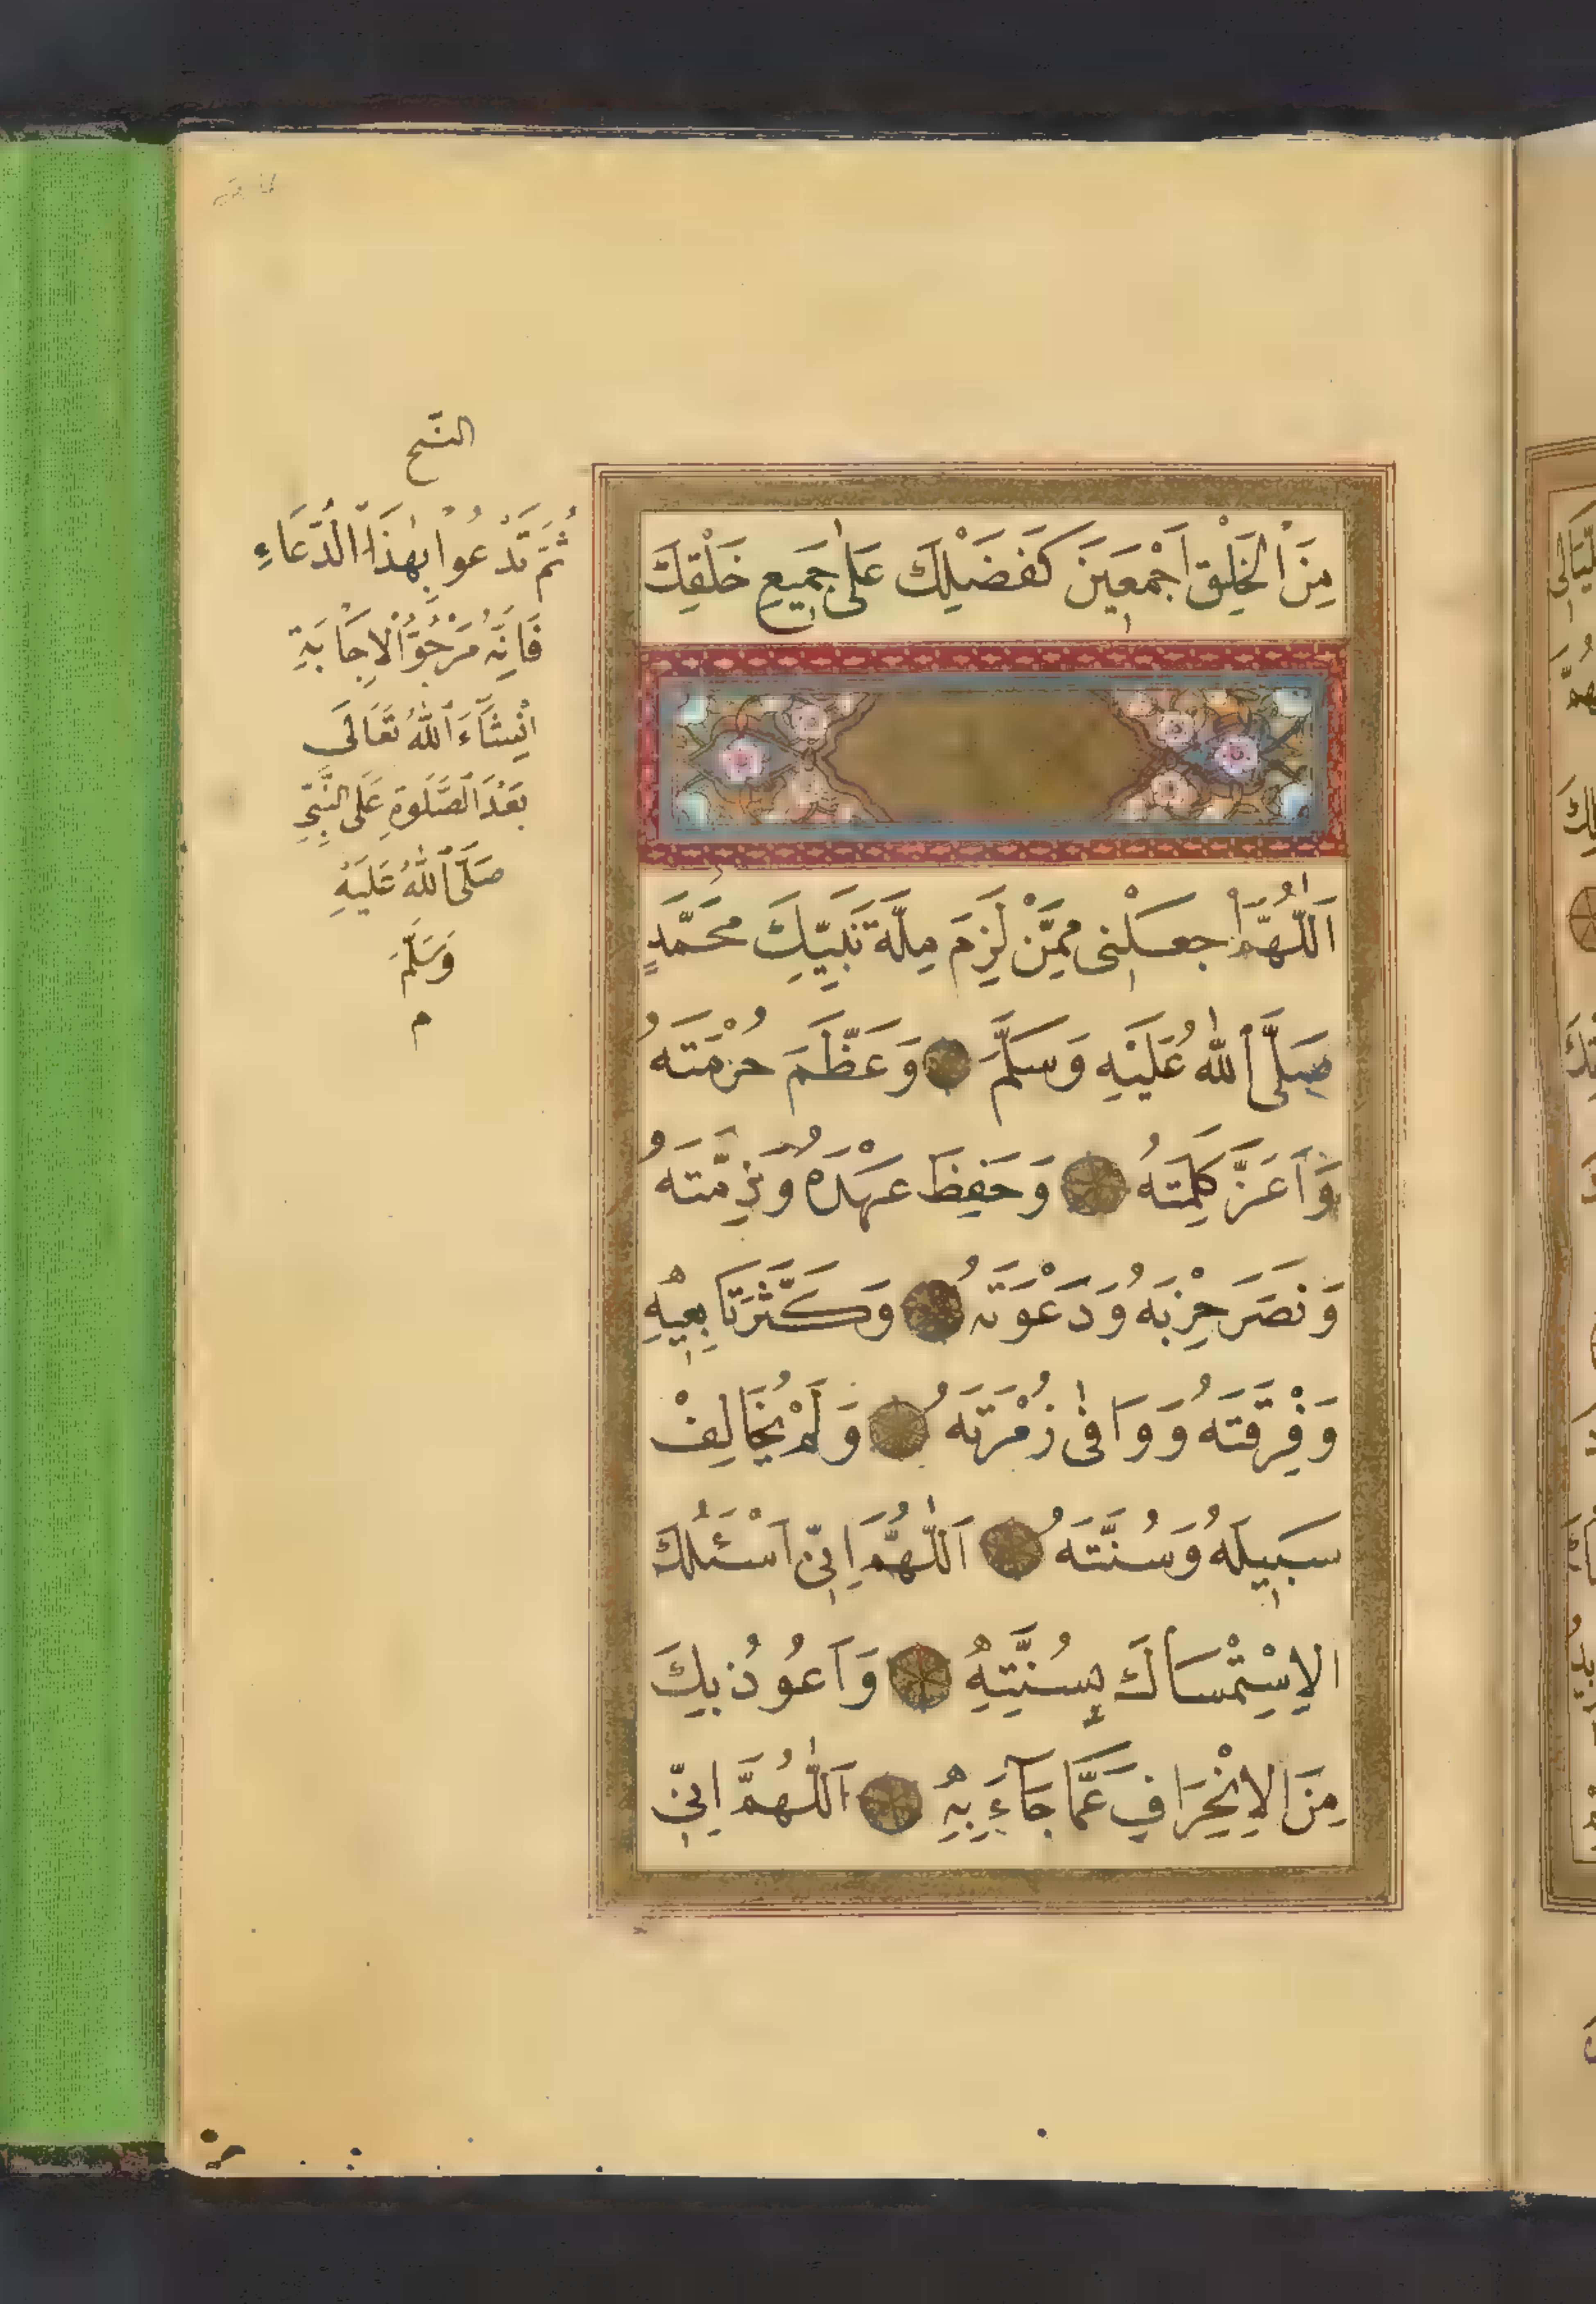 مِنَ الْخَلْقِ اَجْمَعِينَ كَفَضْلِكَ عَلٰى جَمِيعِ خَلْقِكَ
اَللّٰهُمَّ اجْعَلْنِى مِمَّنْ لَزِمَ مِلَّةَ نَبِيِّكَ مُحَمَّدٍ
صَلَّى اللّٰهُ عَلَيْهِ وَسَلَّمَ وَعَظَّمَ حُرْمَتَهُ
وَاَعَزَّ كَلِمَتَهُ وَحَفِظَ عَهْدَهُ وَذِمَّتَهُ
وَنَصَرَ حِزْبَهُ وَدَعْوَتَهُ وَكَثَّرَ تَابِعِيهِ
وَفِرْقَتَهُ وَوَافٰى زُمْرَتَهُ وَلَمْ يُخَالِفْ
سَبِيلَهُ وَسُنَّتَهُ اَللّٰهُمَّ اِنِّى اَسْئَلُكَ
الْاِسْتِمْسَاكَ بِسُنَّتِهِ وَاَعُوذُ بِكَ
مِنَ الْاِنْحِرَافِ عَمَّا جَاءَ بِهِ اَللّٰهُمَّ اِنِّى
ثُمَّ تَدْعُوا بِهٰذَا الدُّعَاءِ
فَاِنَّهُ مَرْجُوُّ الْاِجَابَةِ
اِنْشَآءَ اللّٰهُ تَعَالَى
بَعْدَ الصَّلٰوةِ عَلَى النَّبِىِّ
صَلَّى اللّٰهُ عَلَيْهِ
وَسَلَّمَ
م